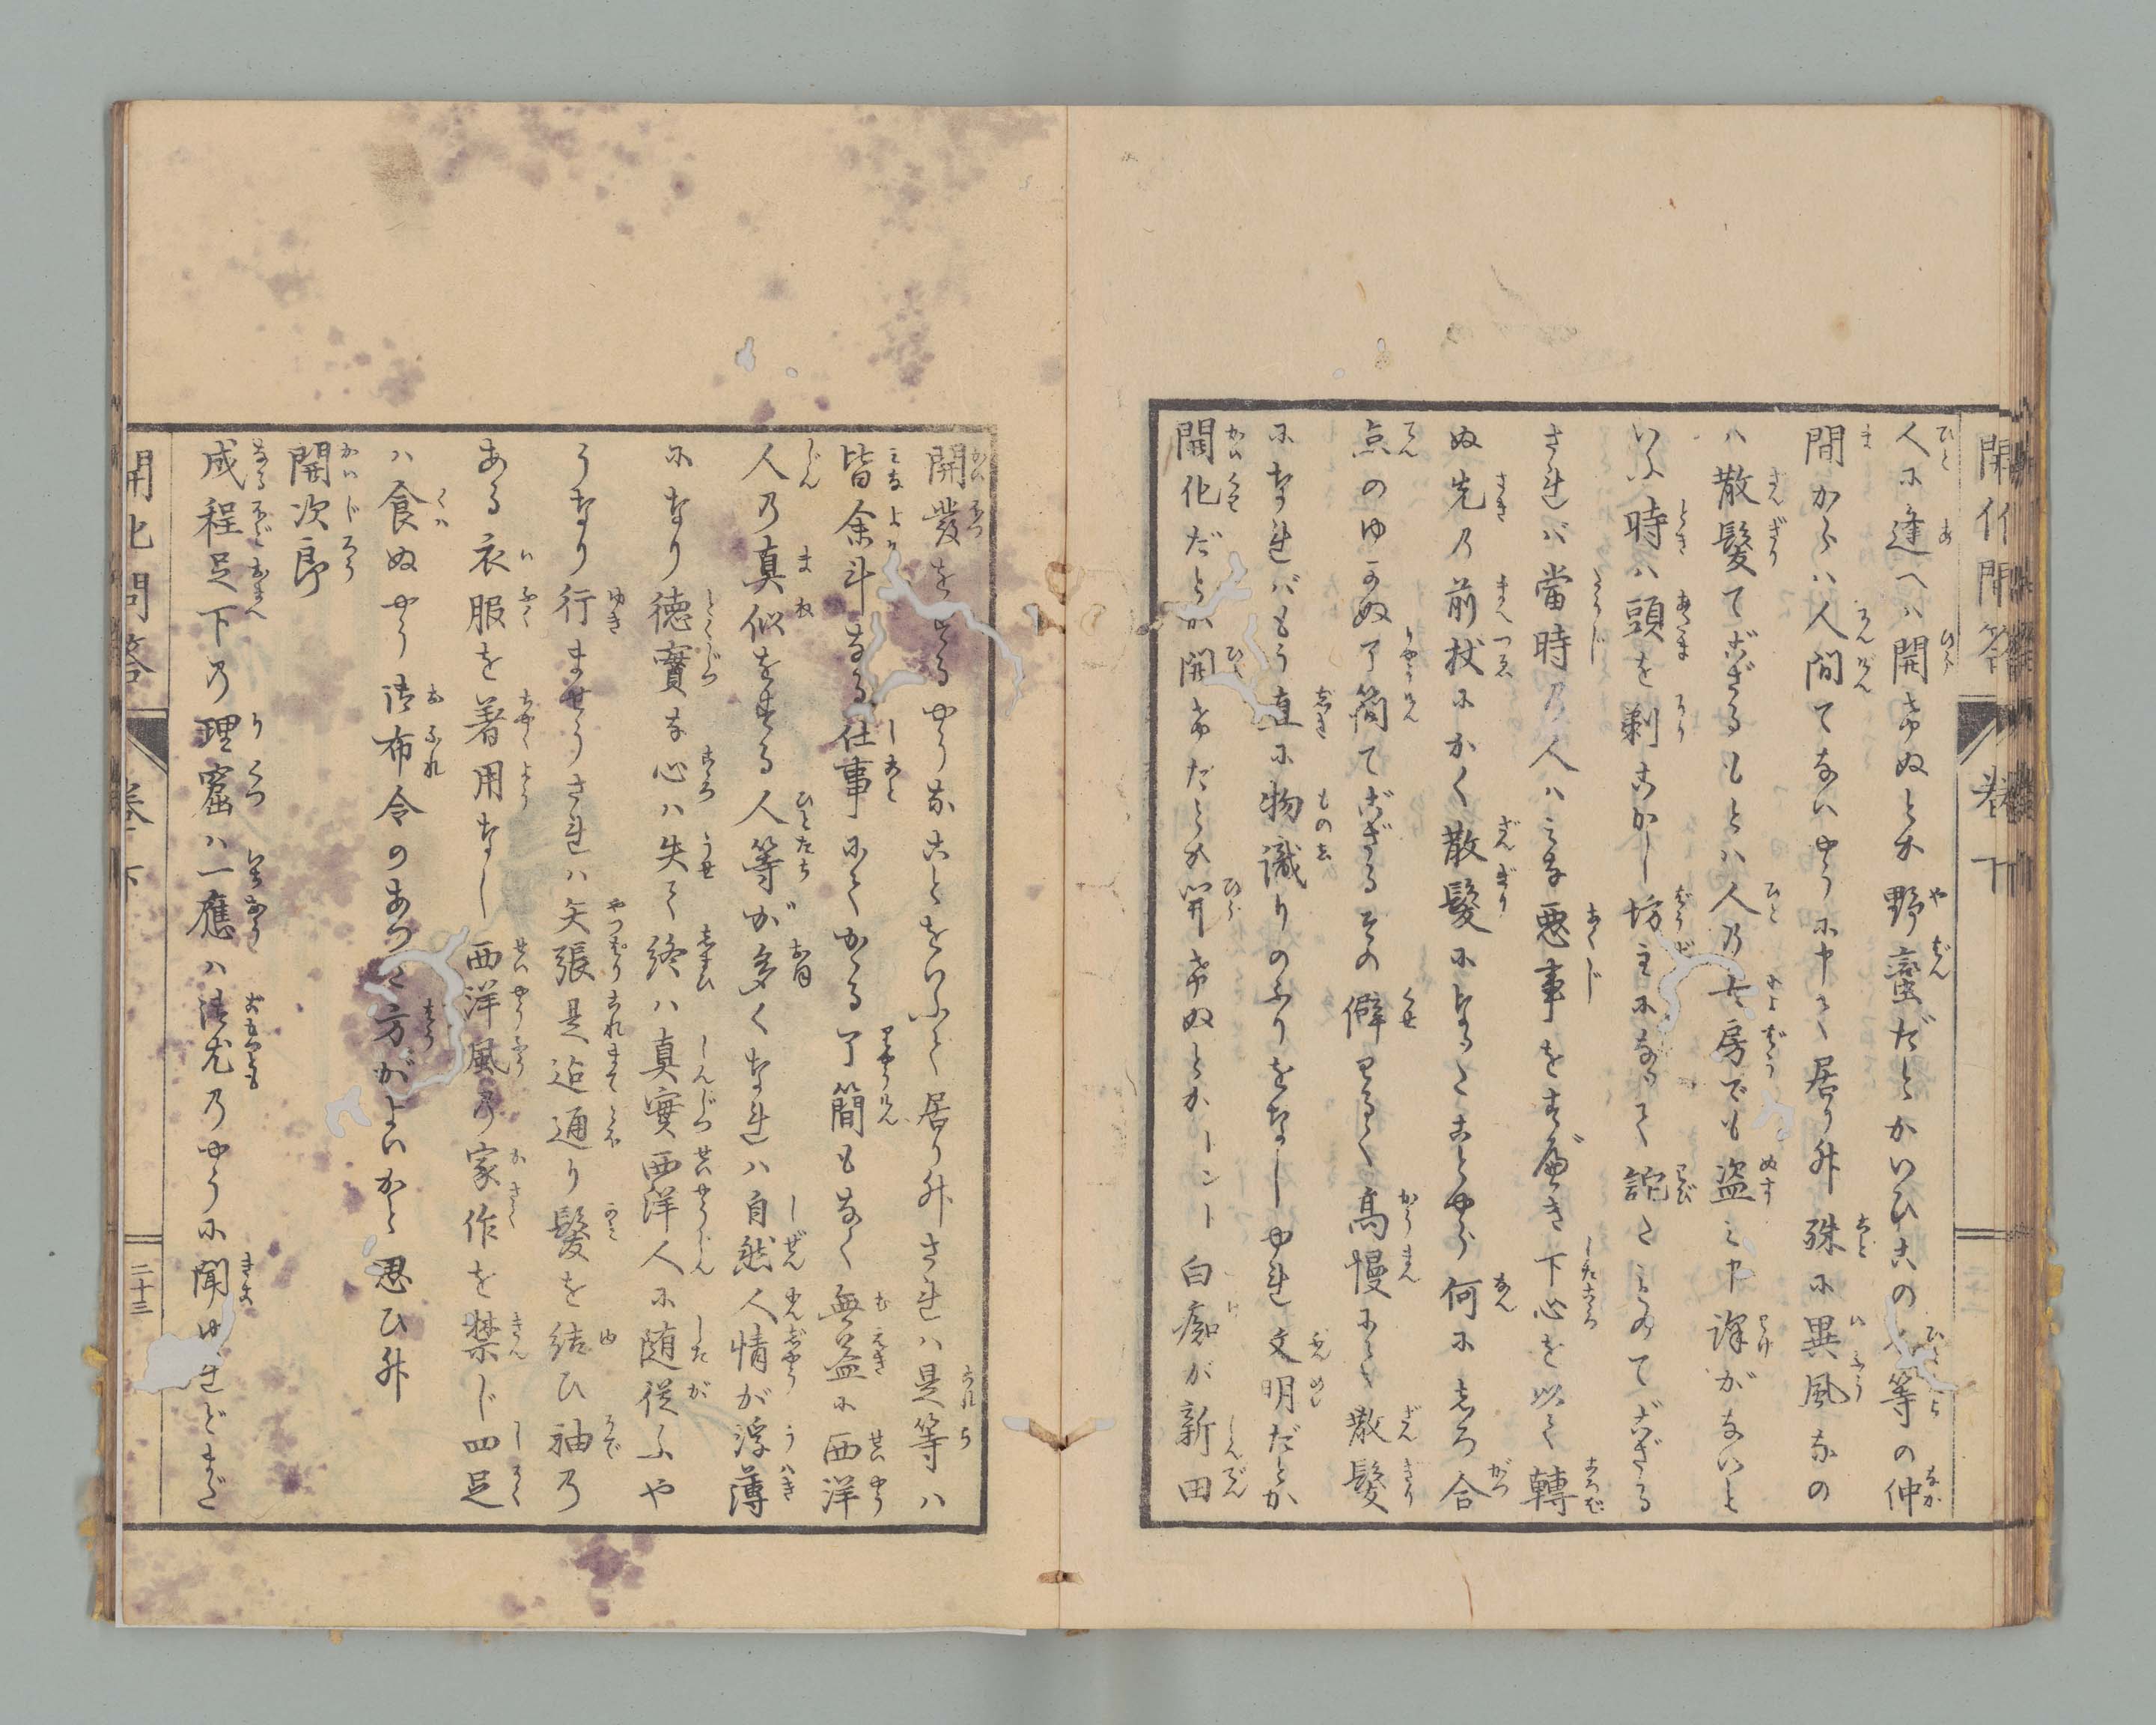 開化問答 巻下
人に逢へハ開けぬとか野蛮だとかいひ其の人等の仲
間からハ人間でないやうに申て居り升殊に異風なの
ハ散髪でござるもとハ人の女房でも盗ミ申譯がないと
いふ時ハ頭を剃こかし坊主になつて詫たものでござる
されバ當時の人ハみな悪事をすべき下心を以て轉
ぬ先の前杖にかく散髪になつたことやら何にしろ合
点のゆかぬ了簡でござるその癖わるく高慢にて散髪
になれバもう直に物識りのふりをなしやれ文明だとか
開化だとか開けたとか開けぬとかトント白痴が新田
開發をするやうなことをいふて居り升されハ是等ハ
皆余斗なる仕事にてかゝる了簡もなく無益に西洋
人の真似をする人等が多くなれハ自然人情が浮薄
になり徳實な心ハ失て終ハ真実西洋人に随従ふや
うなり行ませうされハ矢張是迄通り髪を結ひ袖の
ある衣服を着用なし西洋風の家作を禁じ四足
ハ食ぬやう御布令のあつた方がよいかと思ひ升
開次郎
成程足下の理窟ハ一應ハ御尤のやうに聞やれどまだ
開化問答 巻下 二十三